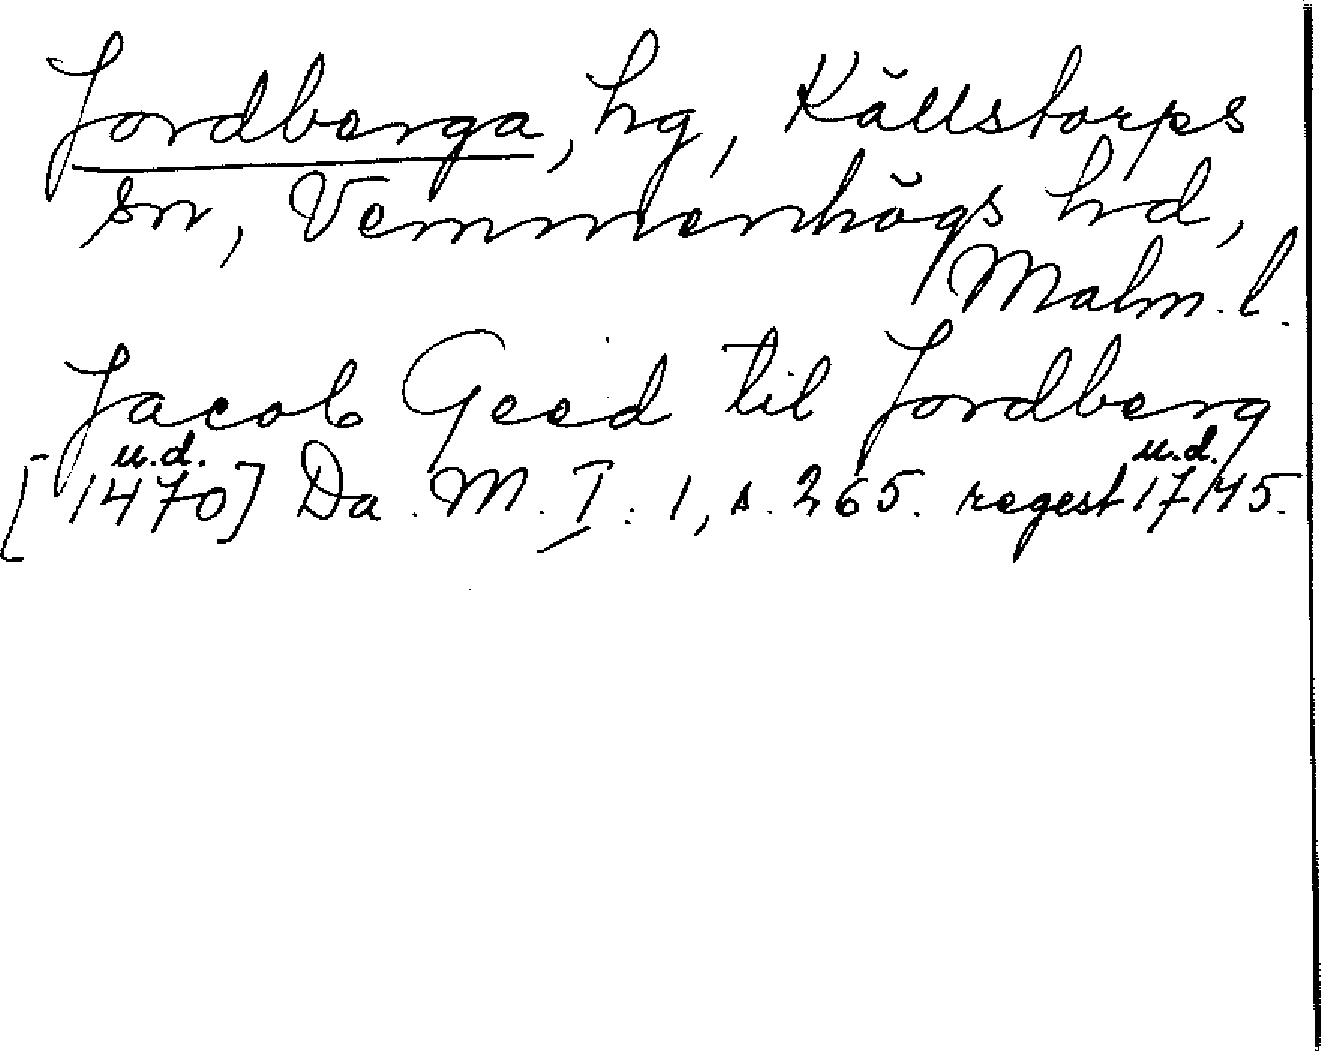 Jordberga, hg, Källstorps
sn, Vemmenhögs hd,
Malm. l.
Jacob Geed til Jordberg
[u.d. 1470] Da. M. I. 1, s. 265. regest u.d. 17/4 5.